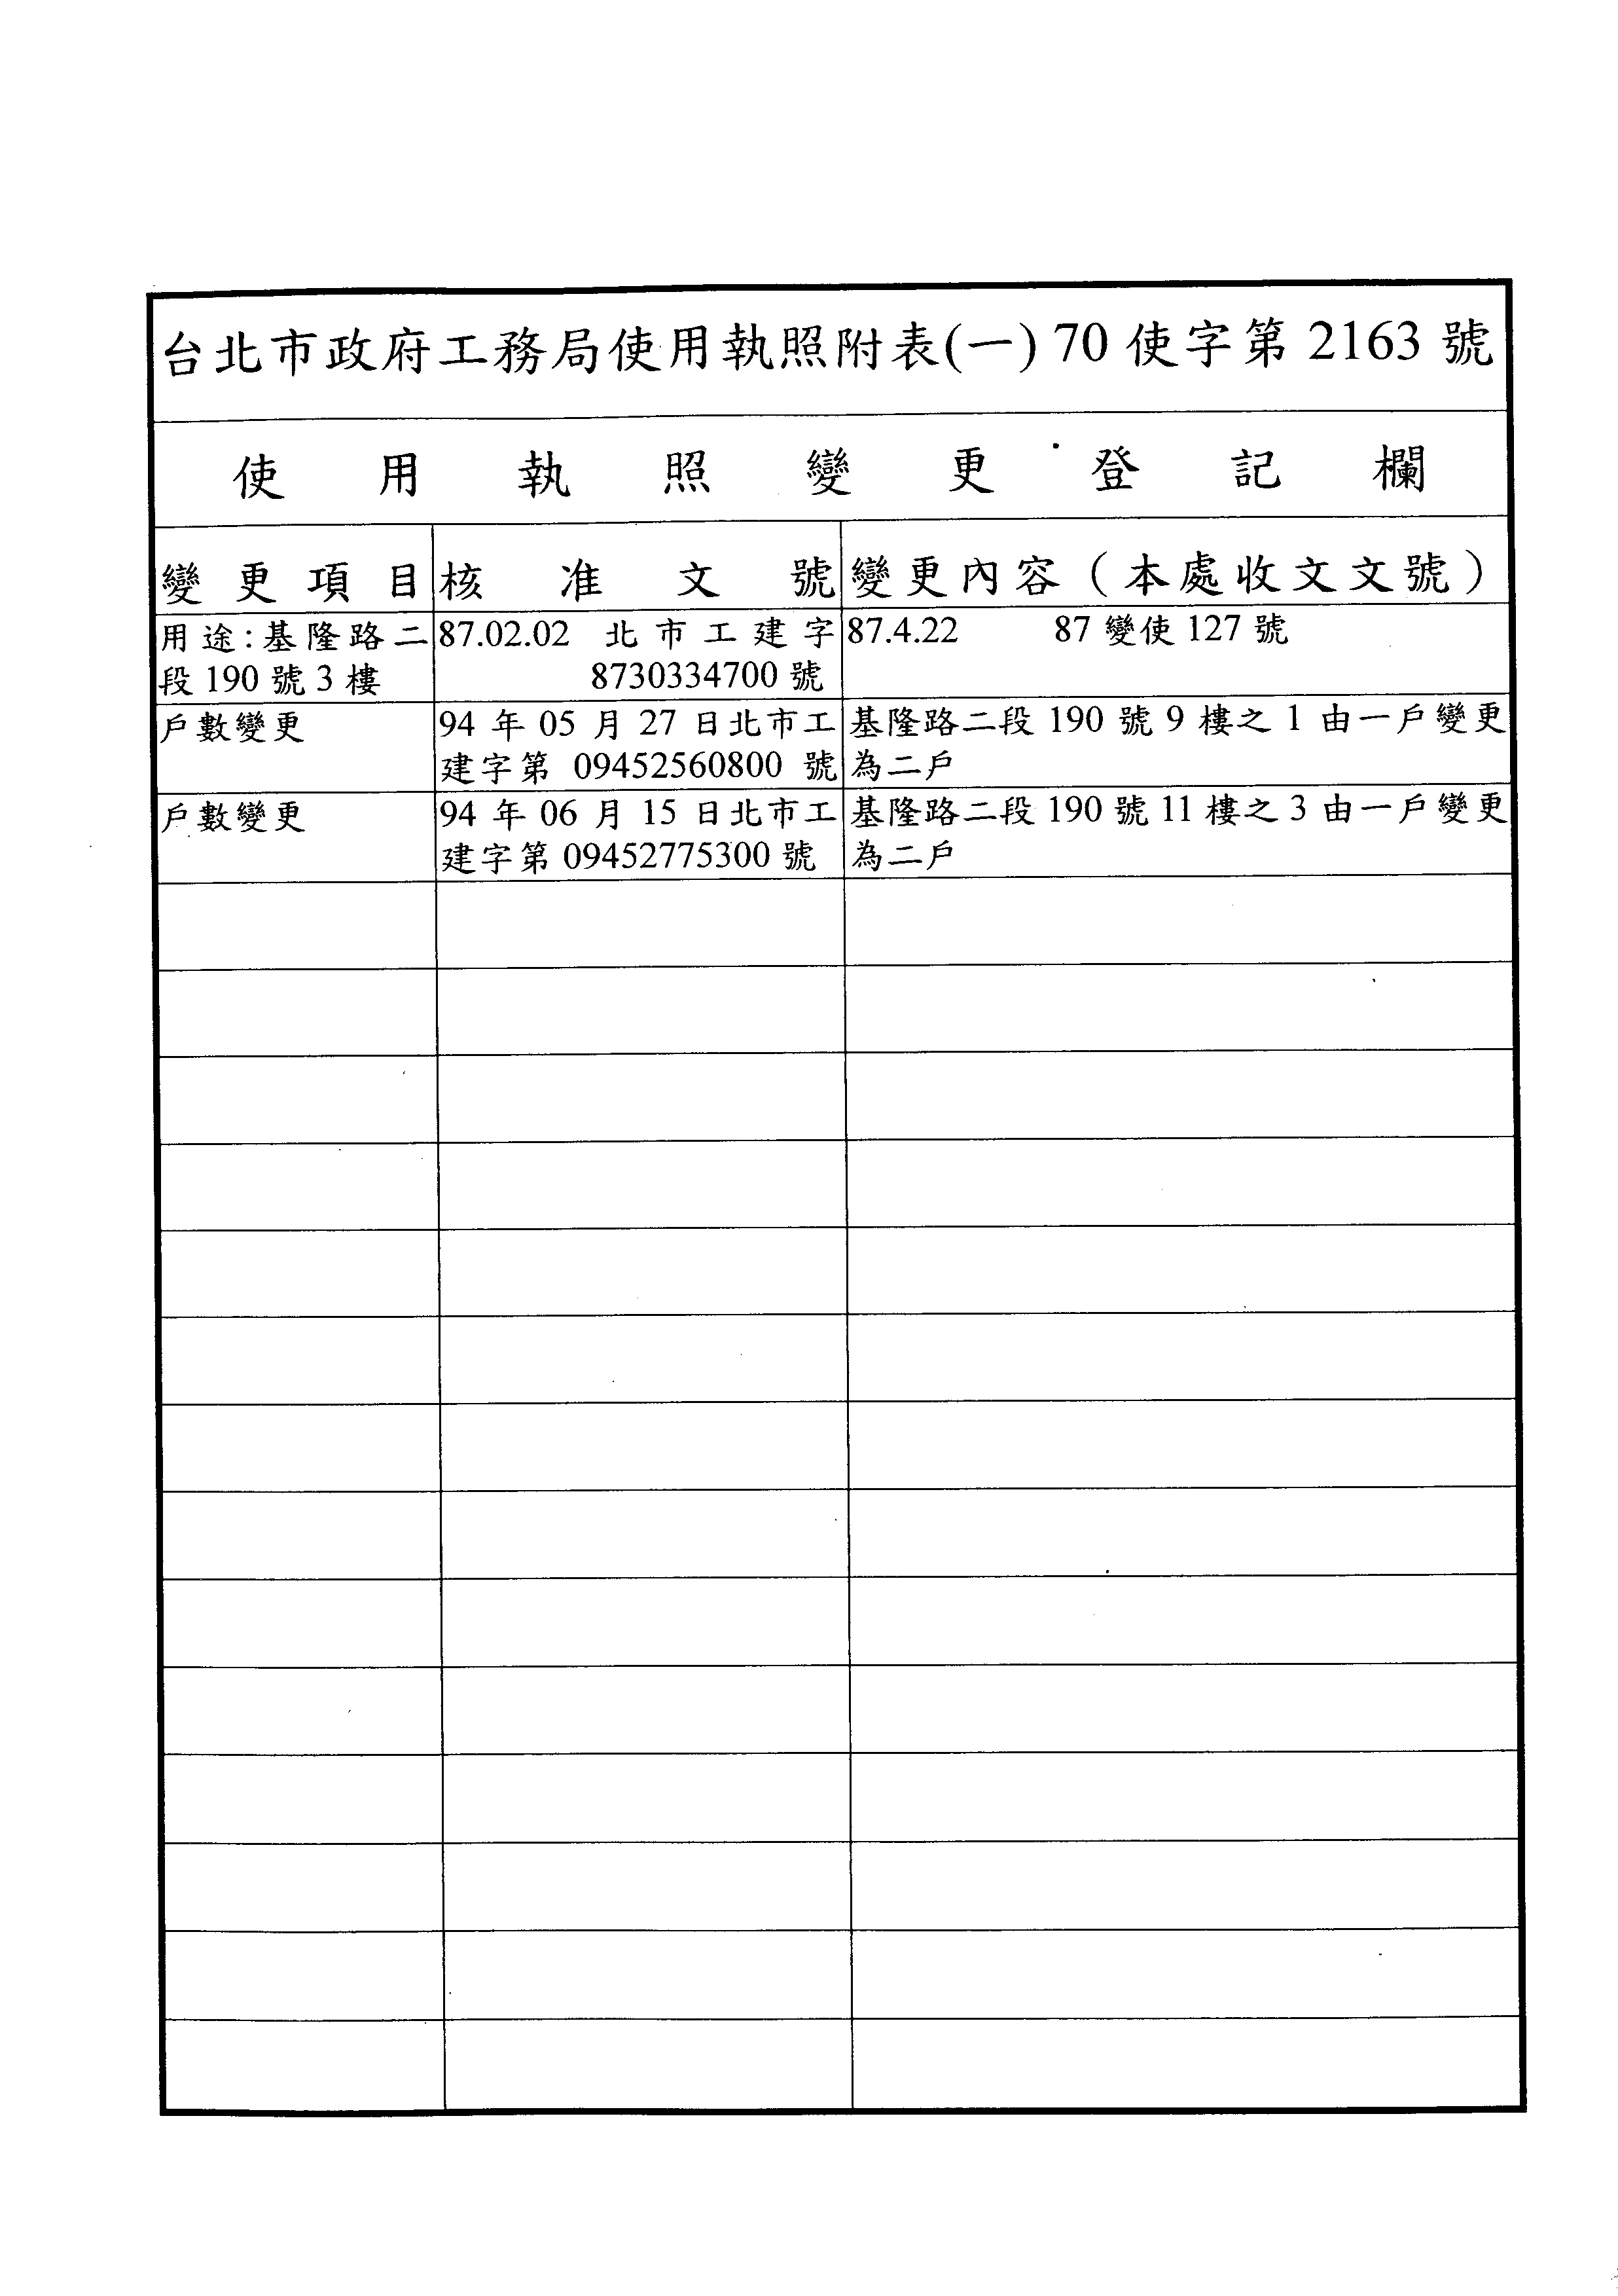 台北市政府工務局使用執照附表(一) 70 使字第 2163 號
使用執照變更登記欄
變更項目 核准文號 變更內容（本處收文文號）
用途:基隆路二 87.02.02 北市工建字 87.4.22 87 變使 127 號
段 190 號 3 樓 8730334700 號
戶數變更 94 年 05 月 27 日北市工 基隆路二段 190 號 9 樓之 1 由一戶變更
建字第 09452560800 號 為二戶
戶數變更 94 年 06 月 15 日北市工 基隆路二段 190 號 11 樓之 3 由一戶變更
建字第 09452775300 號 為二戶